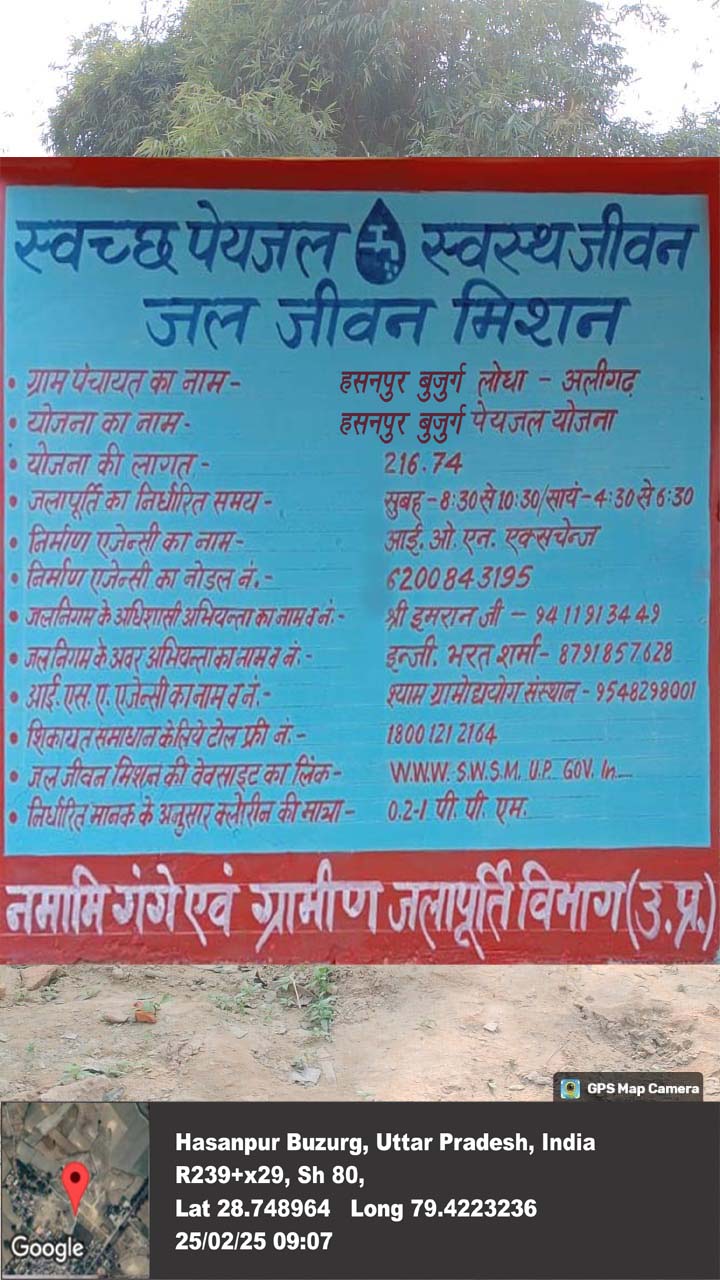 स्वच्छ पेयजल स्वस्थ जीवन
जल जीवन मिशन
• ग्राम पंचायत का नाम - हसनपुर बुजुर्ग लोधा - अलीगढ़
• योजना का नाम - हसनपुर बुजुर्ग पेयजल योजना
• योजना की लागत - 216.74
• जलापूर्ति का निर्धारित समय - सुबह - 8:30 से 10:30/सायं - 4:30 से 6:30
• निर्माण एजेन्सी का नाम - आई. ओ. एन. एक्सचेन्ज
• निर्माण एजेन्सी का नोडल नं. - 6200843195
• जल निगम के अधिशासी अभियन्ता का नाम व नं. - श्री इमरान जी - 9411913449
• जल निगम के अवर अभियन्ता का नाम व नं. - इन्जी. भरत शर्मा - 8791857628
• आई. एस. ए. एजेन्सी का नाम व नं. - श्याम ग्रामोद्ययोग संस्थान - 9548298001
• शिकायत समाधान के लिये टोल फ्री नं. - 1800 121 2164
• जल जीवन मिशन की वेवसाइट का लिंक - W.W.W. S.W.S.M. U.P. GOV. In
• निर्धारित मानक के अनुसार क्लोरीन की मात्रा - 0.2-1 पी. पी. एम.
नमामि गंगे एवं ग्रामीण जलापूर्ति विभाग (उ.प्र.)
GPS Map Camera
Hasanpur Buzurg, Uttar Pradesh, India
R239+x29, Sh 80,
Lat 28.748964 Long 79.4223236
25/02/25 09:07
Google